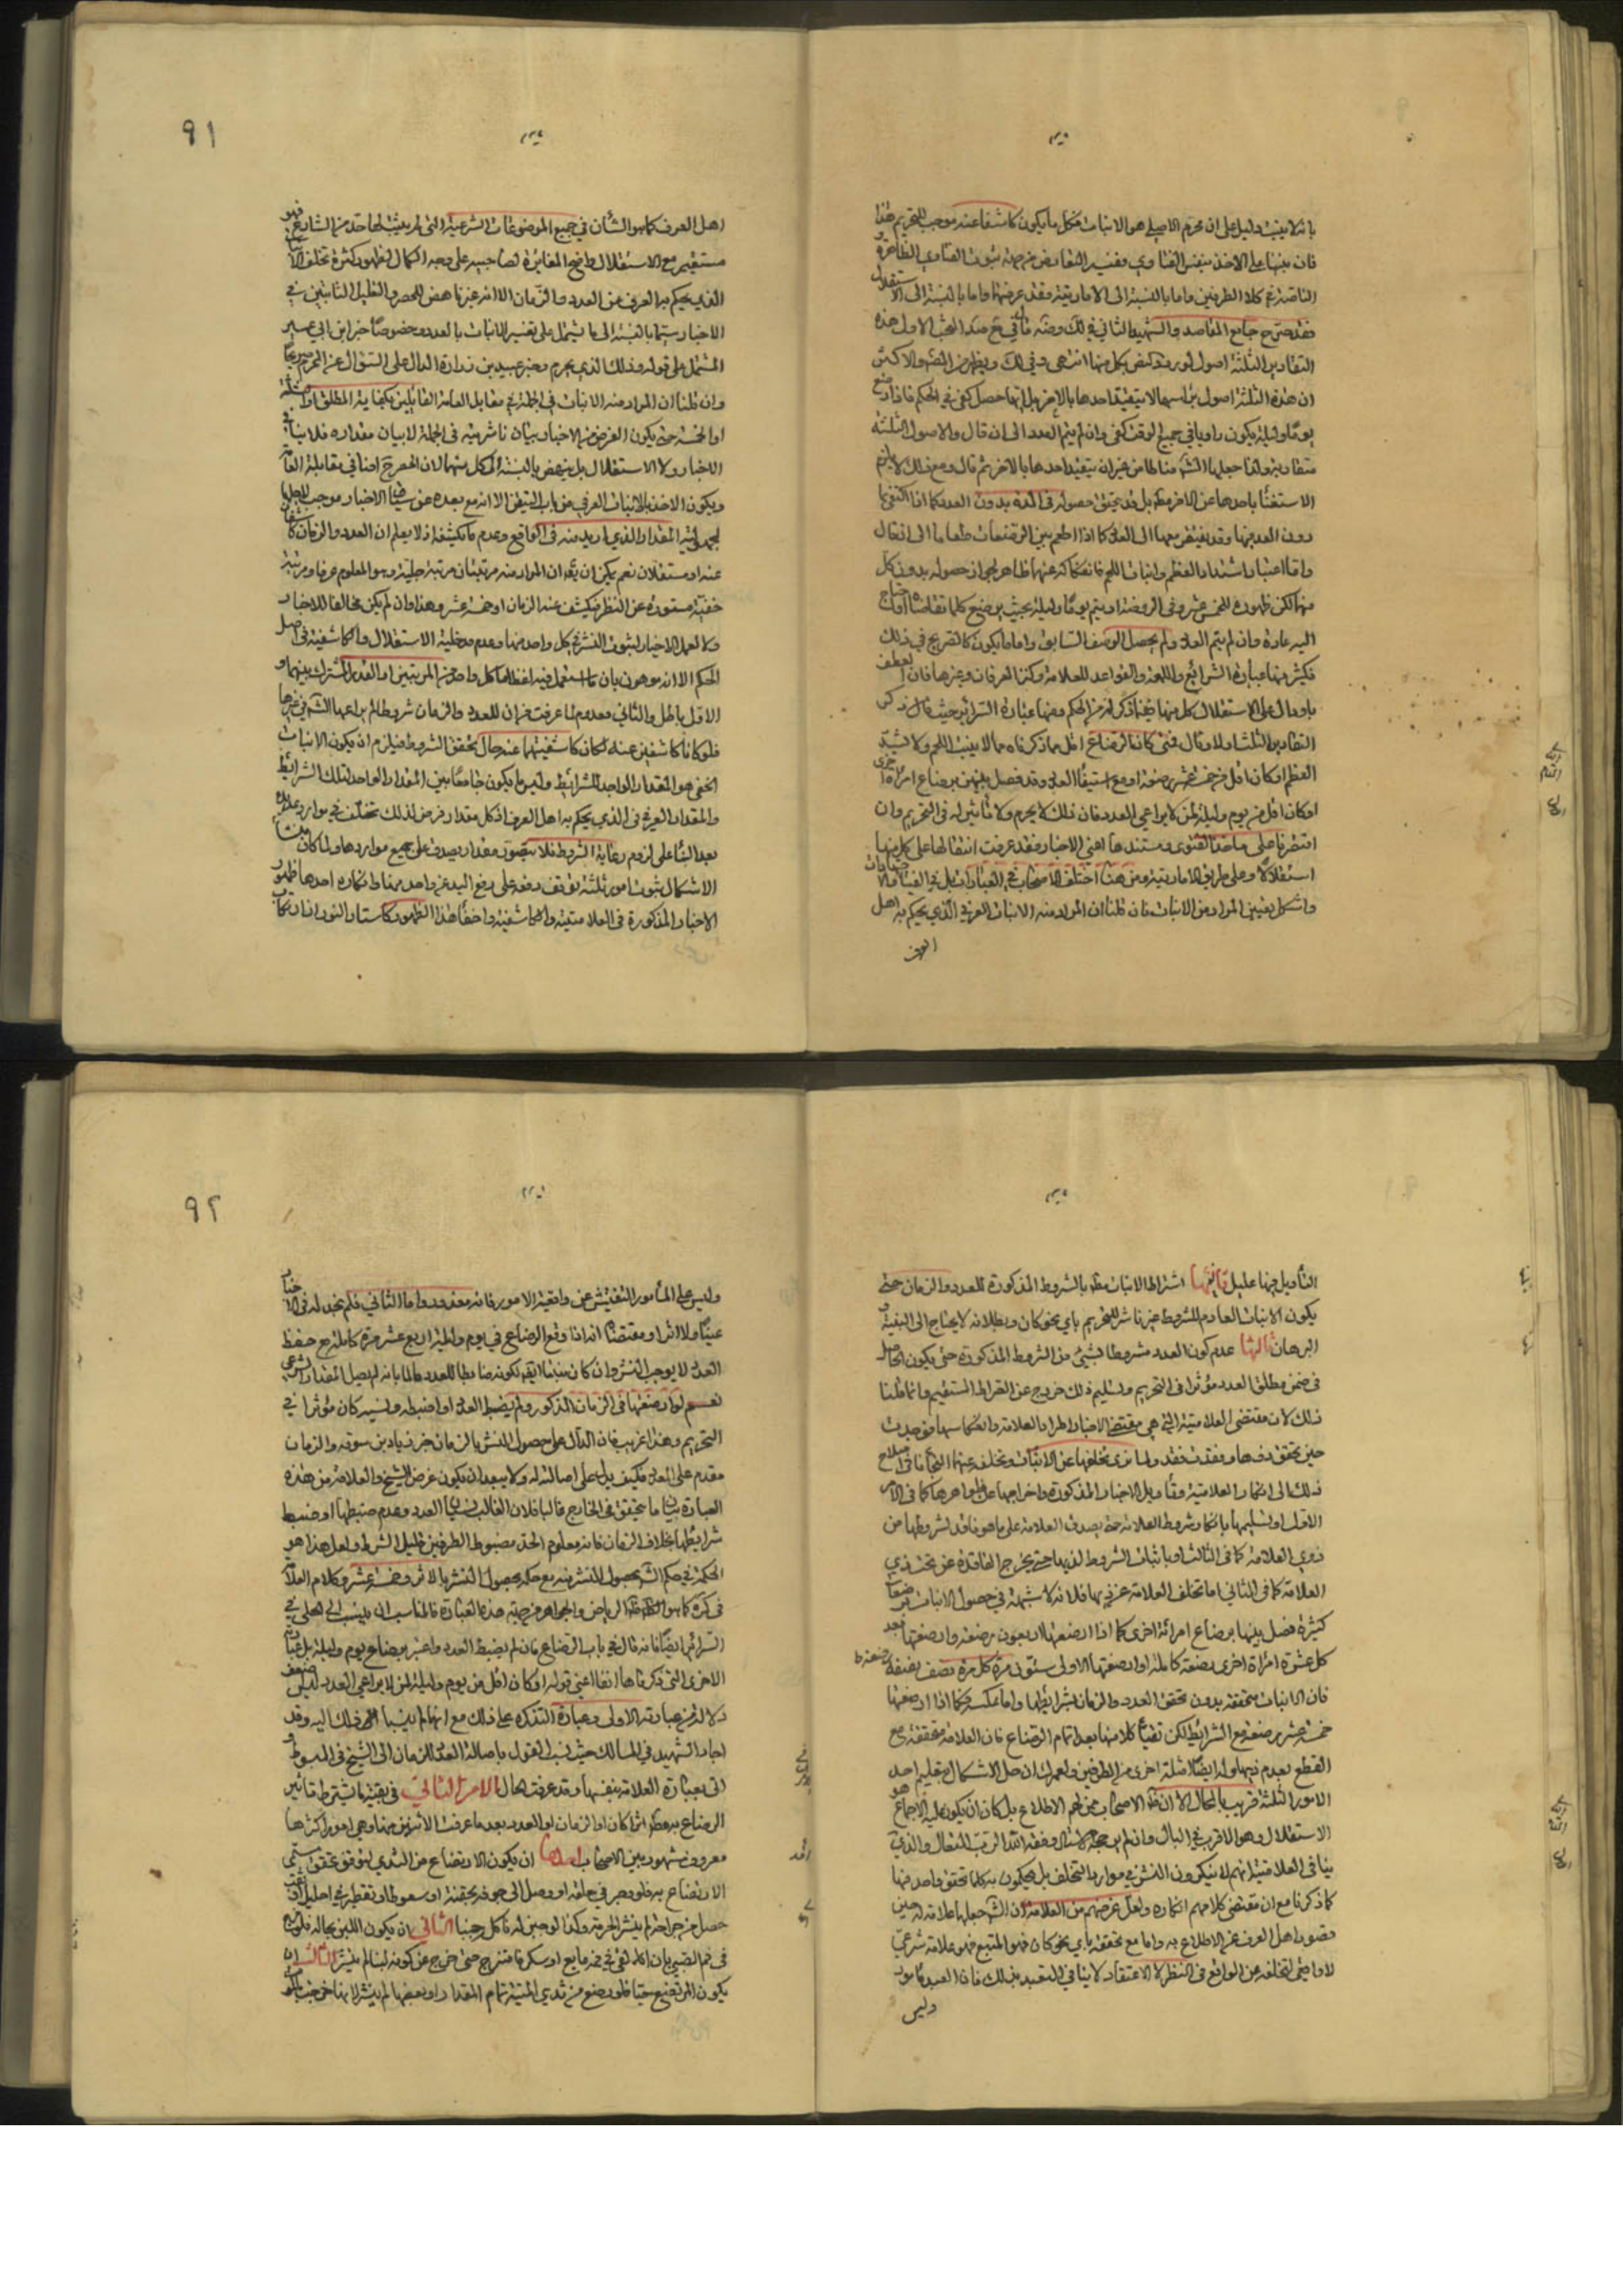 بانه لا يثبت دليل على ان محرم الاصلي هو الانبات فكل ما يكون كاشفا عنه موجب للتحريم هذا
فان بنينا على الاخذ بنفس الفتاوي
الناقصة في كلا الطرفين واما بالنسبة الى الامارتية فقد عرفتها واما بالنسبة الى الاستقلال
فقد صرح جامع المقاصد والشهيد الثاني في لك وضه قال في مع صد البحث الاول هذه
التقادير الثلثة اصول لورود النص بكل منها انتهى وفي لك ويظهر من النص والاكثر
ان هذه الثلثة اصول براسها لا يتقيد احدها بالاخر بل ايها حصل كفى في الحكم فاذا رضع
يوما وليلة يكون راويا في جميع الوقت كفى وان لم يتم العدد الى ان قال والاصول الثلثة
متقاربة ولذا جعلها الش مناطا من غير ان يتقيد احدها بالاخر ثم قال ومع ذلك لا يلزم
الاستغناء باحدها عن الاخر مطلقا بل قد يتفق حصوله في المدة بدون العدد كما اذا اكتفى بها
دون العدد منها وقد يفتقر معهما الى العدد كما اذا اطعم بين الرضعات طعاما الى ان قال
واما اعتبار اشتداد العظم وانبات اللحم فانفكاكه عنهما ظاهر لجواز حصوله بدون كل
منهما لكن ظهوره للخمس عشر وفي الروضة او يتم يوما وليلة بحيث يرضع كلما تقاضاه او احتاج
اليه عادة وان لم يتم العدد ولم يحصل الوصف السابق واما ما يكون كالصريح في ذلك
فكثير منها عبارة الشرائع واللمعة والقواعد للعلامة وكنز العرفان وغيرها فان العطف
باو دال على الاستقلال كل منها فيما ذكر له من الحكم ومنها عبارة السرائر حيث قال ذكر
التقادير الثلث اولا وقال فمتى كان الرضاع اقل مما ذكرناه مما لا ينبت اللحم ولا يشد
العظم او كان اقل من خمس عشر رضعة او مع استيفاء العدد وقد فصل بينهن برضاع امرأة اخرى
او كان اقل من يوم وليلة لمن لا يراعي العدد فان ذلك لا يحرم ولا تأثير له في التحريم وان
اقتصرنا على ماخذ الفتوى ومستندها اعني الاخبار فقد عرفت انتفالها على كل منها
استقلالا وعلى طريق الامارتية ومن هنا اختلف الاصحاب في العبارات بل في الفتاوى
واشكل تعيين المراد من الانبات فان قلنا ان المراد منه الانبات العرفي الذي يحكم به اهل
العرف
٩١
اهل العرف كما هو الشأن في جميع الموضوعات الشرعية التي لم يثبت لها حد من الشارع فهو
مستقيم مع الاستقلال واضح المغايرة لصاحبيه على وجه الكمال لظهور كثرة تخلف الانبات
الذي يحكم به العرف عن العدد والزمان الا انه غير ناهض للحصر والتعليل الثابتين في
الاخبار سيما بالنسبة الى ما يشمل على تفسير الانبات بالعدد وخصوصا خبر ابن ابي عمير
المشتمل على قوله وذلك الذي يحرم وخبر عبيد بن زرارة الدال على السؤال عن المحرم صريحا
وان قلنا ان المراد منه الانبات في الجملة في مقابل العامة القائلين بكفاية المطلق او الثلثة
او الخمسة حتى يكون الغرض من الاخبار بيان ناشريته في الجملة لا بيان مقداره فلا ينافي
الاخبار ولا الاستقلال بل ينهض بالنسبة الى كل منهما لان الحصر ح اضافي بمقابلة العامة
ويكون الاخذ بالانبات العرفي من باب المتيقن الا انه مع بعده عن سياق الاخبار موجب لاجمال
لجهالة المقدار الذي اريد منه في الواقع وعدم ما يكشفه اذ لا يعلم ان العدد والزمان كاشفان
عنه او مستقلان نعم يمكن ان يقال ان المراد منه مرتبتان مرتبة جلية وهو المعلوم عرفا ومرتبة
خفية مستورة عن النظر فيكشف عنه الزمان او خمسة عشر وهذا وان لم يكن مخالفا للاخبار
ولا لعمل الاخيار لثبوت النشر في كل واحد منهما وعدم مدخلية الاستقلال والكاشفية في اصل
الحكم الا انه موهون بان ما استعمل فيه لفظ اما كل واحد من المرتبتين او القدر المشترك بينهما و
الاول باطل والثاني معدوم لما عرفت من ان للعدد والزمان شروطا لم يراعها الش في غيرها
فلو كانا كاشفين عنه لكان كاشفيتهما عند حال تحقق الشروط فيلزم ان يكون الانبات
الخفي هو المقدار الواجد للشرائط وليس ما يكون جامعا بين المقدار الواحد لتلك الشرائط
والمقدار العرفي الذي يحكم به اهل العرف اذ كل مقدار فرض لذلك تتخلف في موارد عديدة
بعد البناء على لزوم رعاية الشروط فلا يتصور مقدار يصدق على جميع مواردها ولما كان مبنى
الاشكال ثبوت امور ثلثة توقف دفعه على رفع اليد عن واحد منها وانكاره احدها ظهور
الاخبار المذكورة في العلامتية والكاشفية واخفاء هذا الظهور كاستار النور اذ ارتكاب
٩٢
التأويل فيها عليل ثانيها اشتراط الانبات مطلقا بالشروط المذكورة للعدد والزمان حتى
يكون الانبات العادم للشروط غير ناشر للتحريم باي نحو كان وبطلانه لا يحتاج الى البينة و
البرهان ثالثها عدم كون العدد مشروطا بشيء من الشروط المذكورة حتى يكون الحاصل
في ضمن مطلق العدد مؤثرا في التحريم وتسليم ذلك خروج عن الصراط المستقيم وانما قلنا
ذلك لان مقتضى العلامتية التي هي مقتضى الاخبار اطراد العلامة وانعكاسها
حين تحقق ذوها وفقدت فقد ولما نرى تخلفها عن الانبات وتخلفه عنها التجأنا في اصلاح
ذلك الى انكار العلامتية وتأويل الاخبار المذكورة واخراجها عن ظواهرها كما في الامر
الاول او تسليمها بانكار شروط العلامة حتى يصدق العلامة على ما هو فاقد لشروطها من
ذوي العلامة كما في الثالث او باثبات الشروط لذيها حتى يخرج الفاقدة عن تحت ذي
العلامة كما في الثاني اما تخلف العلامة عن ذيها فلانه لا شبهة في حصول الانبات برضعات
كثيرة فصل بينها برضاع امرأة اخرى كما اذا ارضعتها اربعون رضعة وارضعتها بعد
كل عشرة امرأة اخرى رضعة كاملة او ارضعتها الاولى ستون مرة كل مرة نصف رضعة
فان الانبات متحققة بدون تحقق العدد والزمان بشرائطها واما عكسه فكما اذا ارضعتها
خمسة عشر رضعة مع الشرائط لكن تقيأ كلا منها بعد اتمام الرضاع فان العلامة متحققة مع
القطع بعدم ذيها وله ايضا امثلة اخرى من الطرفين ولعمرك ان حل الاشكال بتقليم احد
الامور الثلثة قريب بالمحال الا ان فقه الاصحاب ممن لهم الاطلاع بل كاد ان يكون عليه الاجماع هو
الاستقلال وهو الاقرب في البال
ينافي العلامتية انهم لا ينكرون النشر في موارد التخلف بل يحكمون به كلما تحقق واحد منها
كما ذكرنا مع ان مقتضى كلامهم انكاره ولعل غرضهم من العلامة ان الش جعلها علامة له حين
قصور اهل العرف عن الاطلاع به واما مع تحققه باي نحو كان فهو المتبع فهو علامة شرعية
لا واقعي لتخلفه عن الواقع في النظر لا الاعتقاد لا ينافي التعبد بذلك فان العبد مأمور
وليس
وليس على المأمور التفتيش عن واقعية الامور فانه معذور واما الثاني فلم نجد له في الاخبار
عينا ولا اثرا ومقتضاه انه اذا وقع الرضاع في يوم وليلة اربع عشر مرة كاملة مع حفظ
العدد لا يوجب النشر وان كان منبتا ايضا لكونه ضابطا للعدد عالما بانه لم يصل المقدار الشرعي
نعم لو ارضعتها في الزمان المذكور ولم يضبط العدد او اضبطه ونسيه كان مؤثرا في
التحريم وهذا غريب فان الدال على حصول النشر بالزمان خبر زياد بن سوقة والزمان
مقدم على العدد فكيف يدل على اصالته له ولا يبعد ان يكون غرض الشيخ والعلامة من هذه
العبارة بيان ما يتحقق في الخارج غالبا فلان الغالب نسيان العدد وعدم ضبطها او ضبط
شرائطها بخلاف الزمان فانه معلوم الحد مضبوط الطرفين قليل الشرط ولعل هذا هو
الحكمة في حكم الش بحصول النشر به مع حكمه بحصول النشر بالاثر وخمسة عشر وكلام العلامة
في كره كما هو الظاهر الرياض والجواهر مرجعه هذه العبارة فالمناسب ان ينسب الى الحلي في
السرائر ايضا فانه قال في باب الرضاع فان لم يضبط العدد واعتبر برضاع يوم وليلة بل عبارته
الاخرى التي ذكرناها آنفا اعني قوله او كان اقل من يوم وليلة لمن لا يراعي العدد ليس
دلالة من عبارته الاولى وعبارة التذكرة على ذلك مع انهما لم ينسبا الى ذلك اليه وقد
اجاد الشهيد في المسالك حيث نسب القول باصالة العدد للزمان الى الشيخ في المبسوط
اتى بعبارة العلامة بنفسها وقد عرفت حال الامر الثاني في بقية ما يشترط تأثير
الرضاع به مطلقا اثرا كان او الزمان او العدد بعد ما عرفت الاثرين منها وهي امور اكثرها
معروف مشهور بين الاصحاب احدها ان يكون الارتضاع من الثدي لتوقف تحقق مسمى
الارتضاع به فلو وجر في حلقه او وصل الى جوفه بحقنة او سعوط او تقطير في احليل او ثقب
حصل من جراحة لم ينشر الحرمة وكذا لو جبن له فاكل جبنا الثاني ان يكون اللبن بحاله فلو مزج
في فم الصبي بان القى في فمه مايع او سكر فامتزج حتى خرج عن كونه لبنا لم ينشر الثالث ان
يكون المرتضع حيا فلو رضع من ثدي الميتة تمام المقدار او بعضها لم ينشر لانها خرجت بالموت